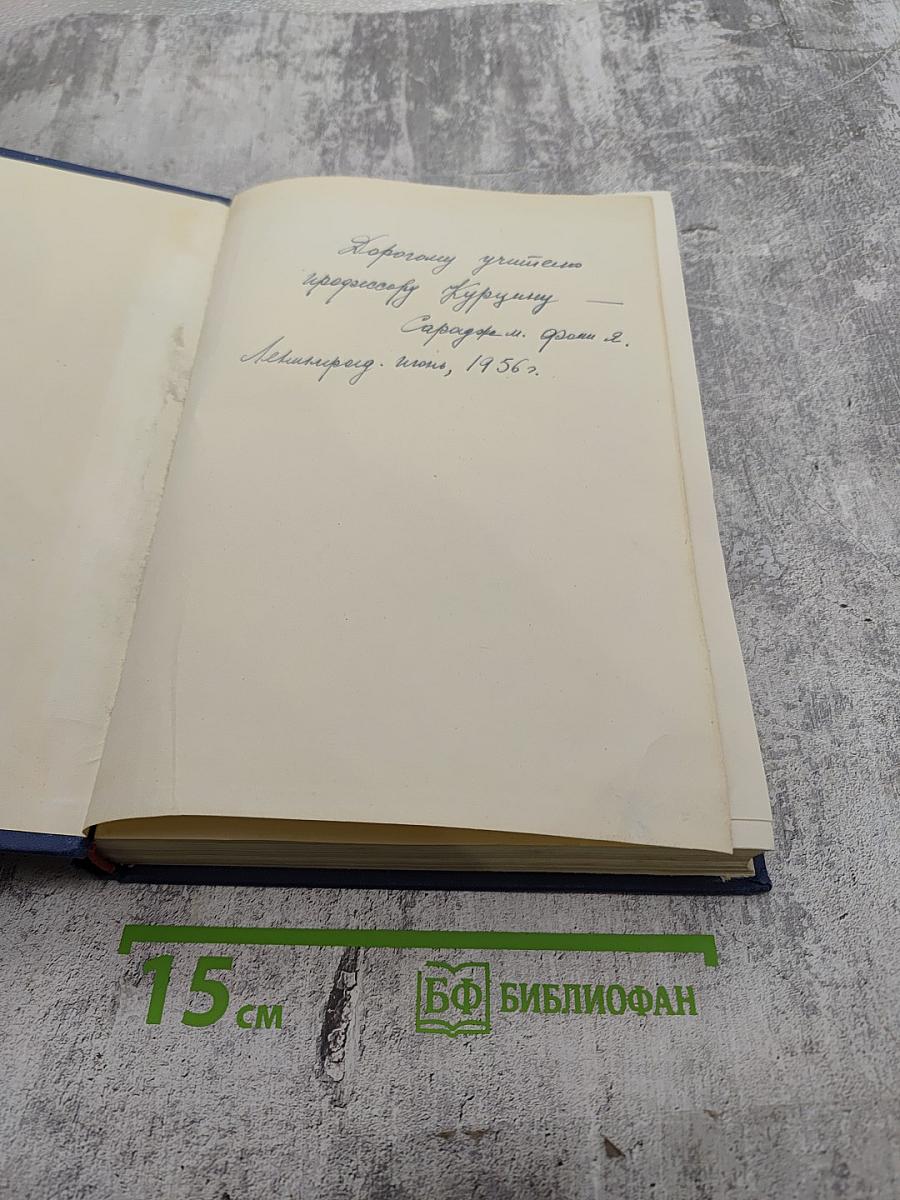 Дорогому учителю
профессору Курцину —
Я.
Ленинград. июнь, 1956 г.
15 см
БФ БИБЛИОФАН